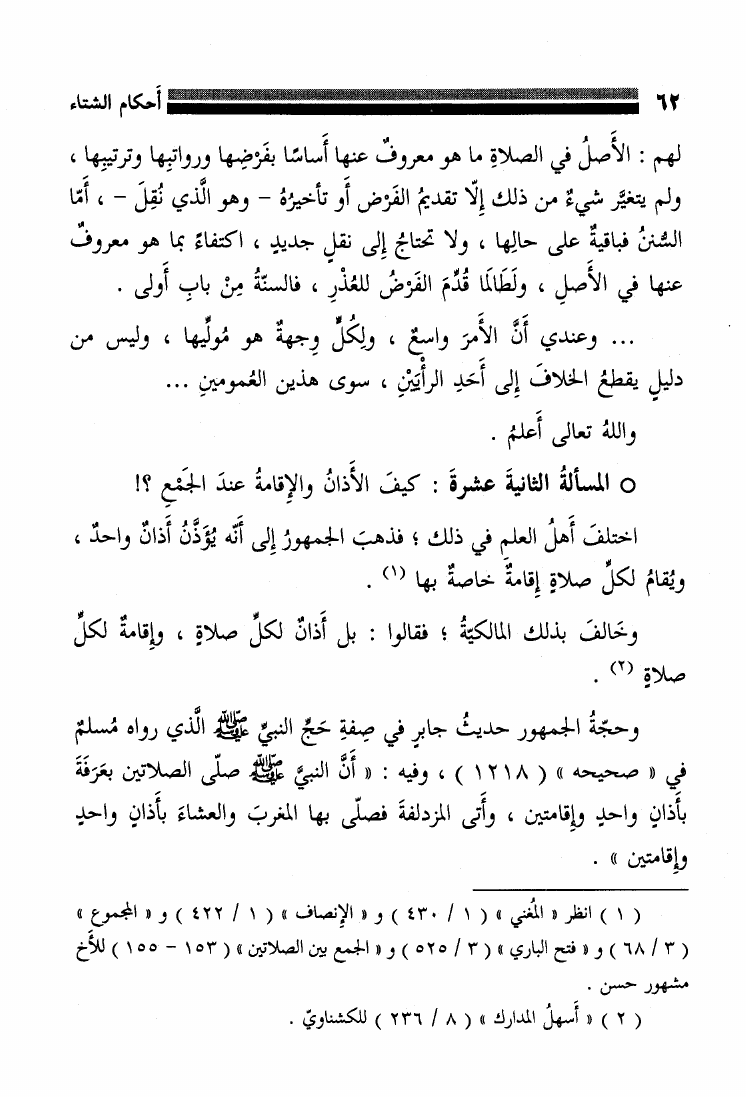 ٦٢ أَحكام الشتاء
لهم : الأَصلُ في الصلاةِ ما هو معروفٌ عنها أَساسًا بفَرْضِها ورواتبِها وترتيبِها ،
ولم يتغيَّر شيءٌ من ذلك إِلّا تقديمُ الفَرْض أَو تأخيرُهُ – وهو الَّذي نُقِلَ – ، أَمّا
السُّننُ فباقيةٌ على حالِها ، ولا تحتاجُ إِلى نقلٍ جديدٍ ، اكتفاءً بما هو معروفٌ
عنها في الأَصلِ ، ولَطَالَمَا قُدِّمَ الفَرْضُ للعُذْرِ ، فالسنّةُ مِنْ بابِ أَولى .
... وعندي أَنَّ الأَمرَ واسعٌ ، ولِكُلٍّ وِجهةٌ هو مُولِّيها ، وليس من
دليلٍ يقطعُ الخلافَ إِلى أَحَدِ الرأْيَيْنِ ، سوى هذين العُمومينِ ...
واللهُ تعالى أَعلمُ .
○ المسألةُ الثانيةَ عشرةَ : كيفَ الأَذانُ والإِقامةُ عندَ الجَمْعِ ؟!
اختلفَ أَهلُ العلمِ في ذلك ؛ فذهبَ الجمهورُ إِلى أَنّه يُؤَذَّنُ أَذانٌ واحدٌ ،
ويُقامُ لكلِّ صلاةٍ إِقامةٌ خاصةٌ بها (١) .
وخَالفَ بذلك المالكيّةُ ؛ فقالوا : بل أَذانٌ لكلِّ صلاةٍ ، وإِقامةٌ لكلِّ
صلاةٍ (٢) .
وحجّةُ الجمهور حديثُ جابرٍ في صِفةِ حَجِّ النبيِّ ﷺ الَّذي رواه مُسلمٌ
في « صحيحه » ( ١٢١٨ ) ، وفيه : « أَنَّ النبيَّ ﷺ صلّى الصلاتين بعَرَفَةَ
بأَذانٍ واحدٍ وإِقامتين ، وأَتى المزدلفةَ فصلّى بها المغربَ والعشاءَ بأَذانٍ واحدٍ
وإِقامتين » .
( ١ ) انظر « المُغني » ( ١ / ٤٣٠ ) و « الإِنصاف » ( ١ / ٤٢٢ ) و « المجموع »
( ٣ / ٦٨ ) و « فتح الباري » ( ٣ / ٥٢٥ ) و « الجمع بين الصلاتين » ( ١٥٣ – ١٥٥ ) للأَخ
مشهور حسن .
( ٢ ) « أَسهلُ المدارك » ( ٨ / ٢٣٦ ) للكشناويّ .